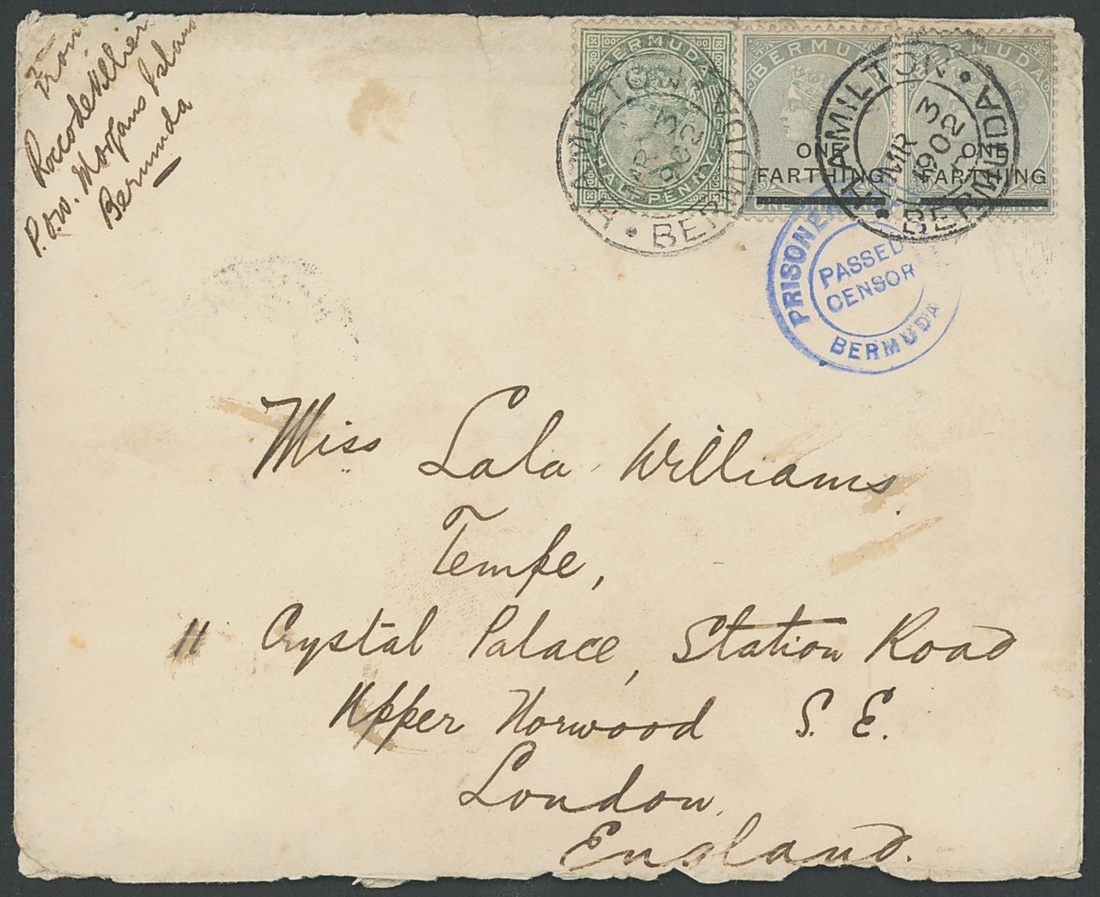 From
Roccodevillier
P.O.W. Morgans Island
Bermuda
BERMUDA
HALF PENNY
BERMUDA
ONE
FARTHING
BERMUDA
ONE
FARTHING
HAMILTON
MR 3
1902
BERMUDA
HAMILTON
MR 3
1902
BERMUDA
PRISONER
PASSED
CENSOR
BERMUDA
Miss Lala Williams
Tempe,
11 Crystal Palace, Station Road
Upper Norwood S. E.
London,
England.